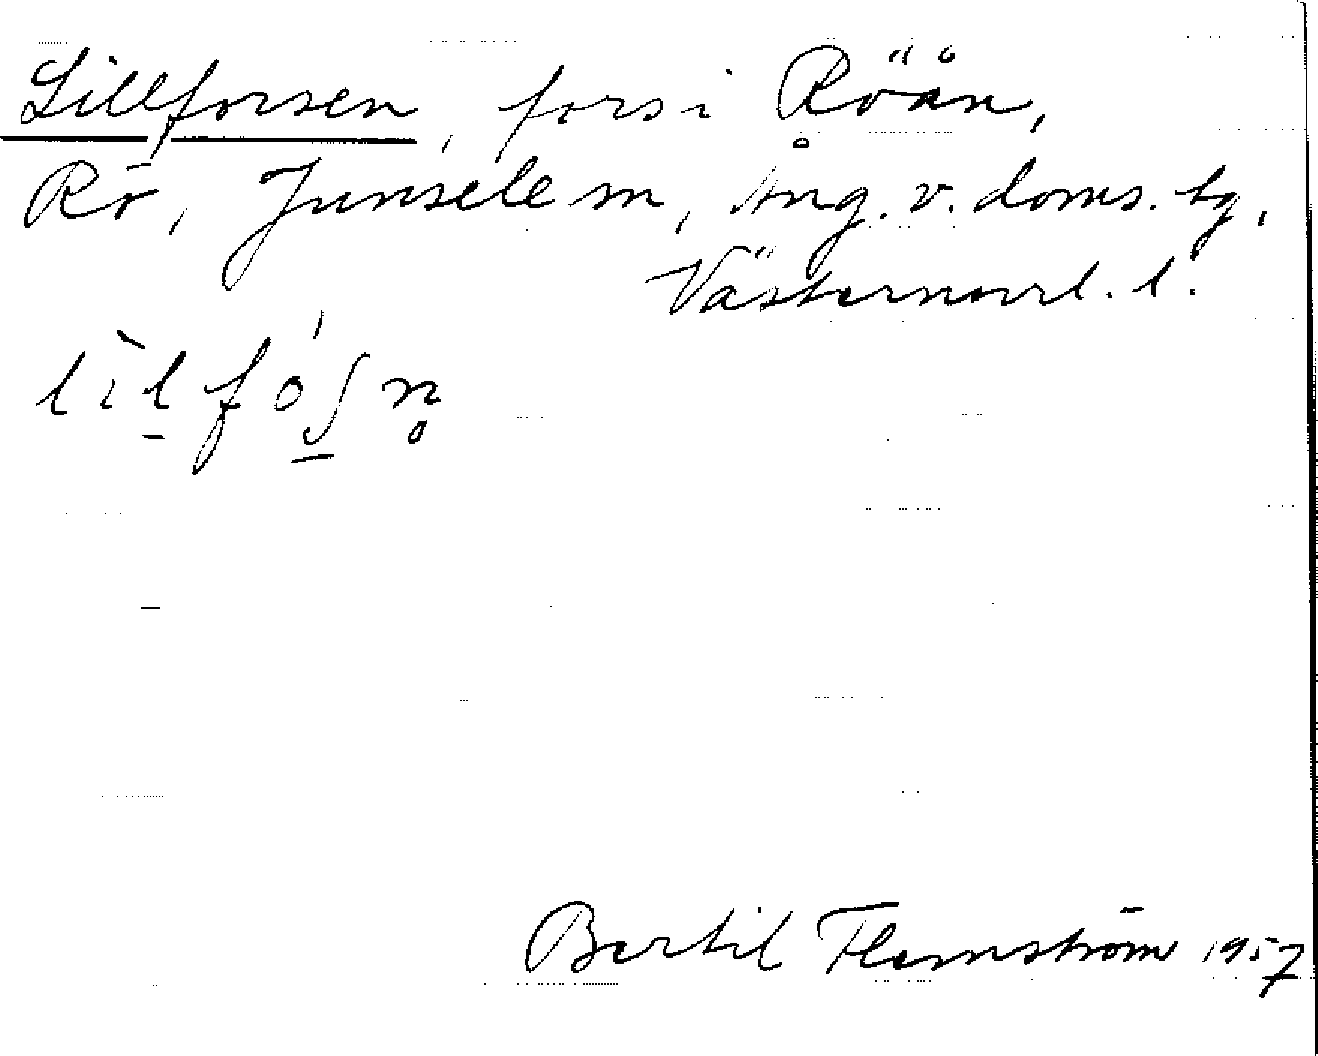 Lillforsen, fors i Röån,
Rö, Junsele sn, Ång. v. doms. tg,
Västernorrl. l.
lìl̠fóʃ̠n̥
Bertil Flemström 1957